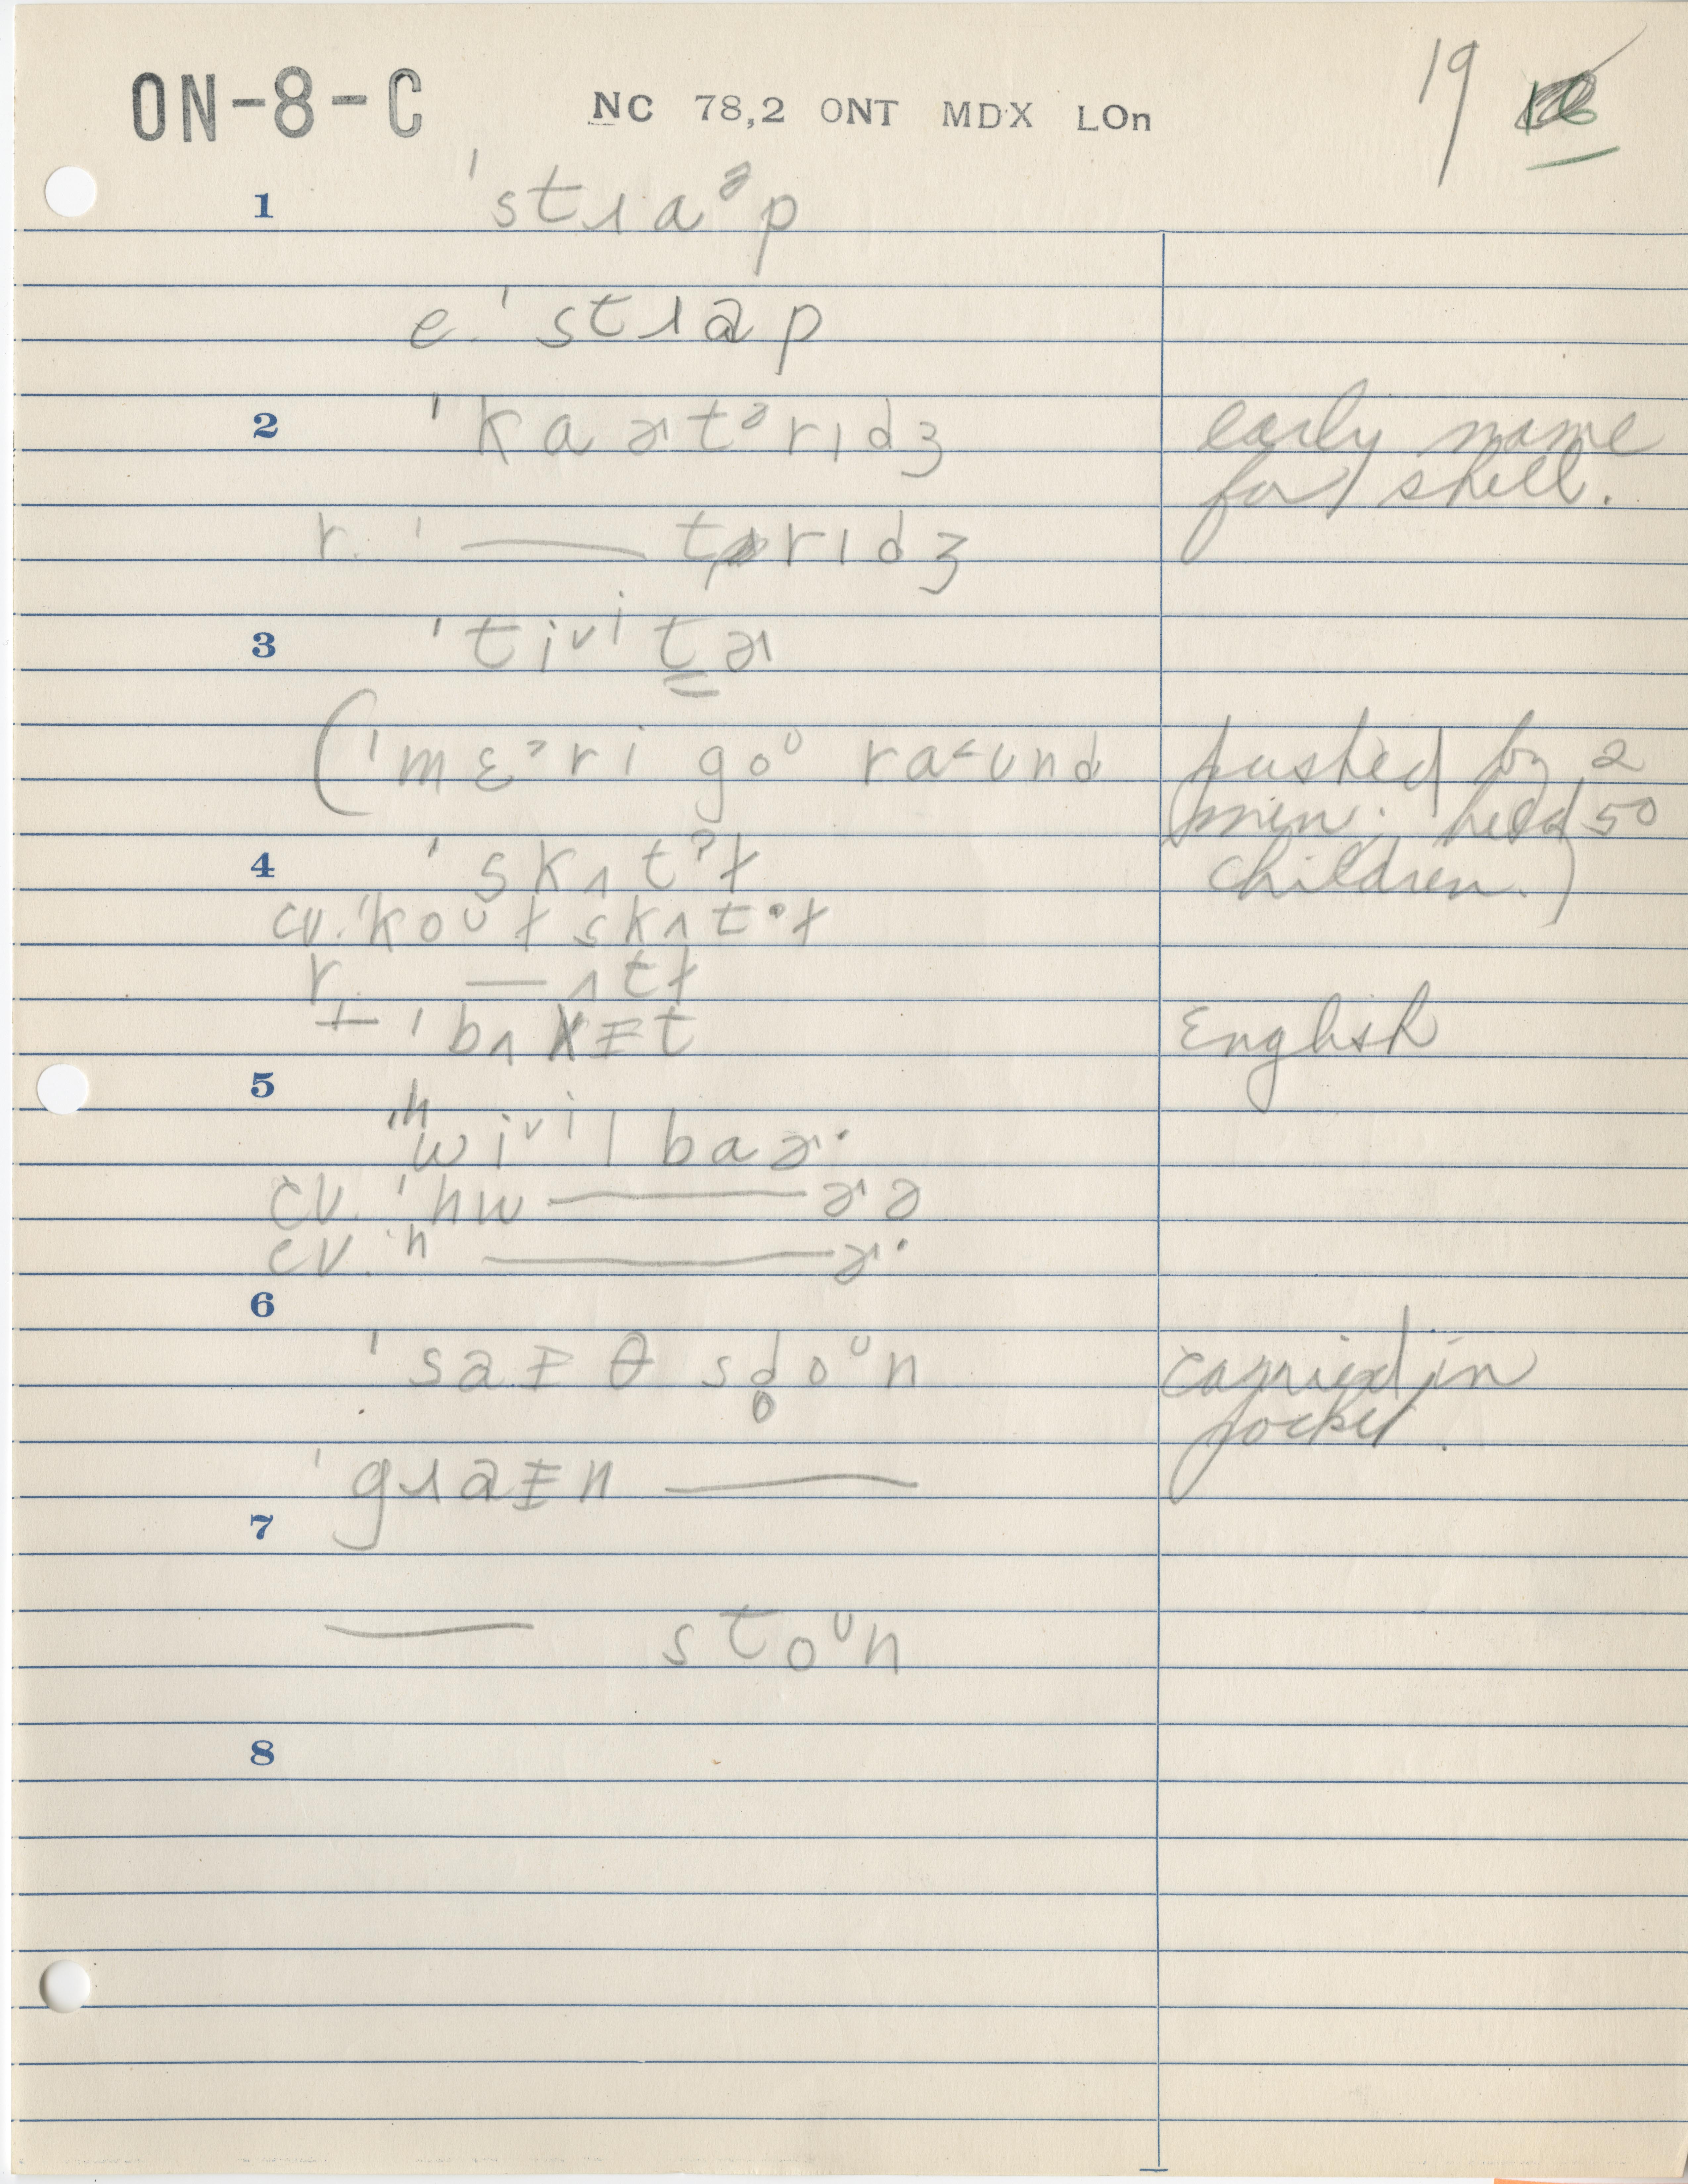 ON-8-C NC 78,2 ONT MDX LOn 19
1 ˈstɹaᵊp
e. ˈstɹap
2 ˈkaɚtᵊrɪdʒ early name
for shell.
r. ˈ—— tɚrɪdʒ
3 ˈtiᵛⁱt̳ɚ
(ˈmɛᵊri goᵘ raᶜund pushed by 2
men; held 50
4 ˈskʌtᵊɫ children.)
cv. ˈkoᵘɫ skʌtᵊɫ
r. —ʌtɫ
ˈbʌkɪt English
5
ˈʰwiᵛⁱlbaɚ·
cv. ˈhw——ɚə
cv. ˈʰ——ɚ·
6
ˈsaɪθ sd̥oᵘn carried in
pocket.
ˈgɹaɪn ——
7
—— stoᵘn
8